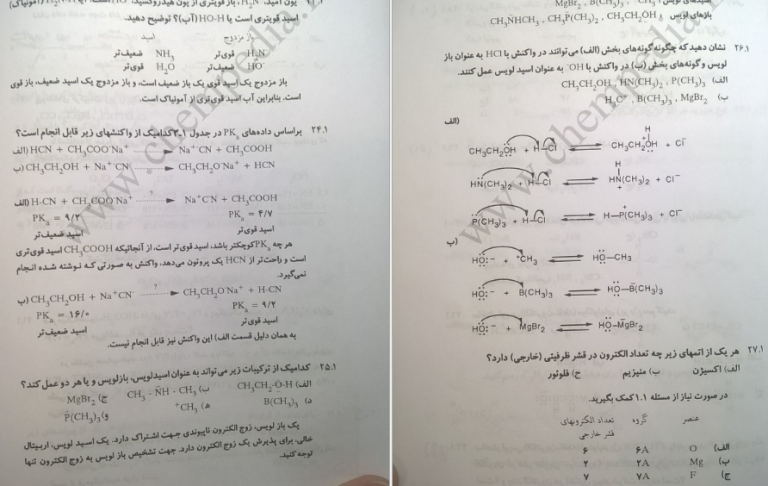 اسید قویتری است یا HO-H (آب)؟ توضیح دهید.
اسید باز مزدوج
NH₃ ضعیف‌تر H₂N⁻ قوی‌تر
H₂O قوی‌تر HO⁻ ضعیف‌تر
باز مزدوج یک اسید قوی یک باز ضعیف است، و باز مزدوج یک اسید ضعیف، باز قوی
است. بنابراین آب اسید قوی‌تری از آمونیاک است.
۲۴.۱ براساس داده‌های PKₐ در جدول ۱-۳ کدامیک از واکنشهای زیر قابل انجام است؟
الف) HCN + CH₃COO⁻Na⁺ → Na⁺⁻CN + CH₃COOH
ب) CH₃CH₂OH + Na⁺⁻CN → CH₃CH₂O⁻Na⁺ + HCN
الف) H-CN + CH₃COO⁻Na⁺ →? Na⁺⁻CN + CH₃COOH
PKₐ = ۹/۲ PKₐ = ۴/۷
اسید ضعیف‌تر اسید قوی‌تر
هر چه PKₐ کوچکتر باشد، اسید قوی‌تر است، از آنجائیکه CH₃COOH اسید قوی‌تری
است و راحت‌تر از HCN یک پروتون می‌دهد، واکنش به صورتی که نوشته شده انجام
نمی‌گیرد.
ب) CH₃CH₂OH + Na⁺⁻CN →? CH₃CH₂O⁻Na⁺ + H-CN
PKₐ = ۱۶/۰ PKₐ = ۹/۲
اسید ضعیف‌تر اسید قوی‌تر
به همان دلیل قسمت الف) این واکنش نیز قابل انجام نیست.
۲۵.۱ کدامیک از ترکیبات زیر می‌تواند به عنوان اسیدلویس، بازلویس و یا هر دو عمل کند؟
الف) CH₃CH₂-O-H ب) CH₃-NH-CH₃ ج) MgBr₂
د) B(CH₃)₃ ه) ⁺CH₃ و) P(CH₃)₃
یک باز لویس، زوج الکترون ناپیوندی جهت اشتراک دارد. یک اسید لویس، اربیتال
خالی، برای پذیرش یک زوج الکترون دارد. جهت تشخیص باز لویس به زوج الکترون تنها
توجه کنید.
بازهای لویس CH₃NHCH₃ , CH₃P(CH₃)₂ , CH₃CH₂OH
۲۶.۱ نشان دهید که چگونه گونه‌های بخش (الف) می‌توانند در واکنش با HCl به عنوان باز
لویس و گونه‌های بخش (ب) در واکنش با OH⁻ به عنوان اسید لویس عمل کنند.
الف) CH₃CH₂OH , HN(CH₃)₂ , P(CH₃)₃
ب) B(CH₃)₃ , MgBr₂
الف)
CH₃CH₂OH + H-Cl ⇌ CH₃CH₂OH + Cl⁻
H
HN(CH₃)₂ + H-Cl ⇌ HN(CH₃)₂ + Cl⁻
H
P(CH₃)₃ + H-Cl ⇌ H-P⁺(CH₃)₃ + Cl⁻
ب)
HO:⁻ + ⁺CH₃ ⇌ HO-CH₃
HO:⁻ + B(CH₃)₃ ⇌ HO-B⁻(CH₃)₃
HO:⁻ + MgBr₂ ⇌ HO-Mg⁻Br₂
۲۷.۱ هر یک از اتمهای زیر چه تعداد الکترون در قشر ظرفیتی (خارجی) دارد؟
الف) اکسیژن ب) منیزیم ج) فلوئور
در صورت نیاز از مسئله ۱.۱ کمک بگیرید.
عنصر گروه تعداد الکترونهای قشر خارجی
الف) O ۶A ۶
ب) Mg ۲A ۲
ج) F ۷A ۷